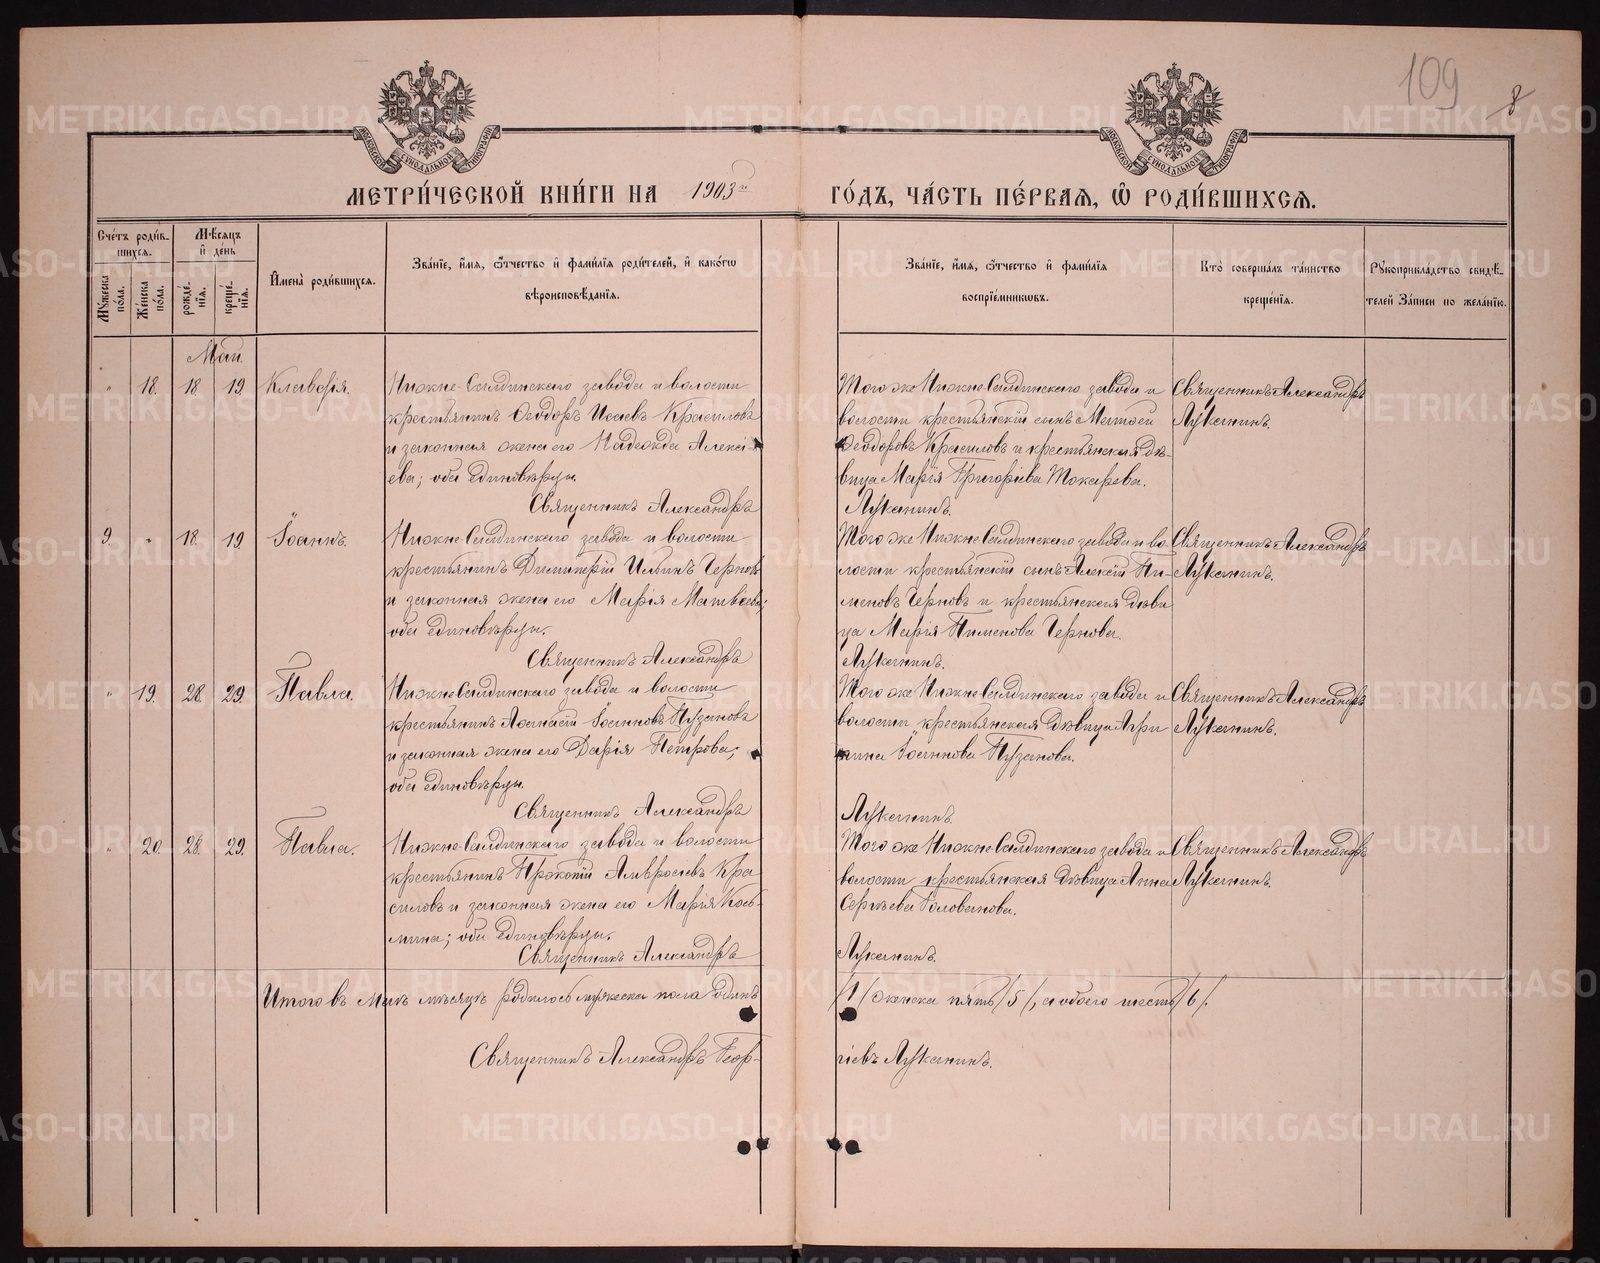 109
8
МОСКОВСКОЙ СУНОДАЛЬНОЙ ТИПОГРАФИИ
МОСКОВСКОЙ СУНОДАЛЬНОЙ ТИПОГРАФИИ
МЕТРИ́ЧЕСКОЙ КНИ́ГИ НА 1903 ГО́ДЪ, ЧА́СТЬ ПЕ́РВАЯ, Ѡ РОДИ́ВШИХСЯ.
Сче́тъ роди́в-
шихся.
Му́жеска по́ла.
Же́нска по́ла.
Мѣ́сяцъ
и де́нь
рожде́-
нїя.
креще́-
нїя.
Имена̀ роди́вшихся.
Зва́нїе, и́мя, ѻ́тчество и фами́лїя роди́телей, и како́гѡ
вѣроисповѣ́данїя.
Зва́нїе, и́мя, ѻ́тчество и фами́лїя
воспрїе́мниковъ.
Кто̀ соверша́лъ та́инство
креще́нїя.
Рукоприкла́дство свидѣ́-
телей за́писи по жела́нїю.
Май.
" 18. 18 19. Клавдія.
Нижне-Салдинскаго завода и волости
крестьянинъ Ѳеодоръ Исаевъ Красиловъ
и законная жена его Надежда Алексі-
ева; оба единовѣрцы.
Священникъ Александръ
Того же Нижне-Салдинскаго завода и
волости крестьянскій сынъ Матѳей
Ѳеодоровъ Красиловъ и крестьянская дѣ-
вица Марія Григоріева Токарева.
Луканинъ.
Священникъ Александръ
Луканинъ.
9. " 18. 19. Іоаннъ.
Нижне-Салдинскаго завода и волости
крестьянинъ Димитрій Ильинъ Черновъ
и законная жена его Марія Матвѣева;
оба единовѣрцы.
Священникъ Александръ
Того же Нижне-Салдинскаго завода и во-
лости крестьянскій сынъ Алексій Пи-
меновъ Черновъ и крестьянская дѣви
ца Марія Пименова Чернова.
Луканинъ.
Священникъ Александръ
Луканинъ.
" 19. 28. 29. Павла.
Нижне-Салдинскаго завода и волости
крестьянинъ Аѳанасій Іоанновъ Пузановъ
и законная жена его Дарія Петрова;
оба единовѣрцы.
Священникъ Александръ
Того же Нижне-Салдинскаго завода и
волости крестьянская дѣвица Агри
пина Іоаннова Пузанова.
Луканинъ.
Священникъ Александръ
Луканинъ.
" 20. 28. 29. Павла.
Нижне-Салдинскаго завода и волости
крестьянинъ Прокопій Амвросіевъ Кра
силовъ и законная жена его Марія Кось-
мина; оба единовѣрцы.
Священникъ Александръ
Того же Нижне-Салдинскаго завода и
волости крестьянская дѣвица Анна
Сергѣева Голованова.
Луканинъ.
Священникъ Александръ
Луканинъ.
Итого въ Маѣ мѣсяцѣ родилось мужеска пола одинъ /1/ женска пять /5/, а обоего шесть /6/.
Священникъ Александръ Геор-
гіевъ Луканинъ.
METRIKI.GASO-URAL.RU